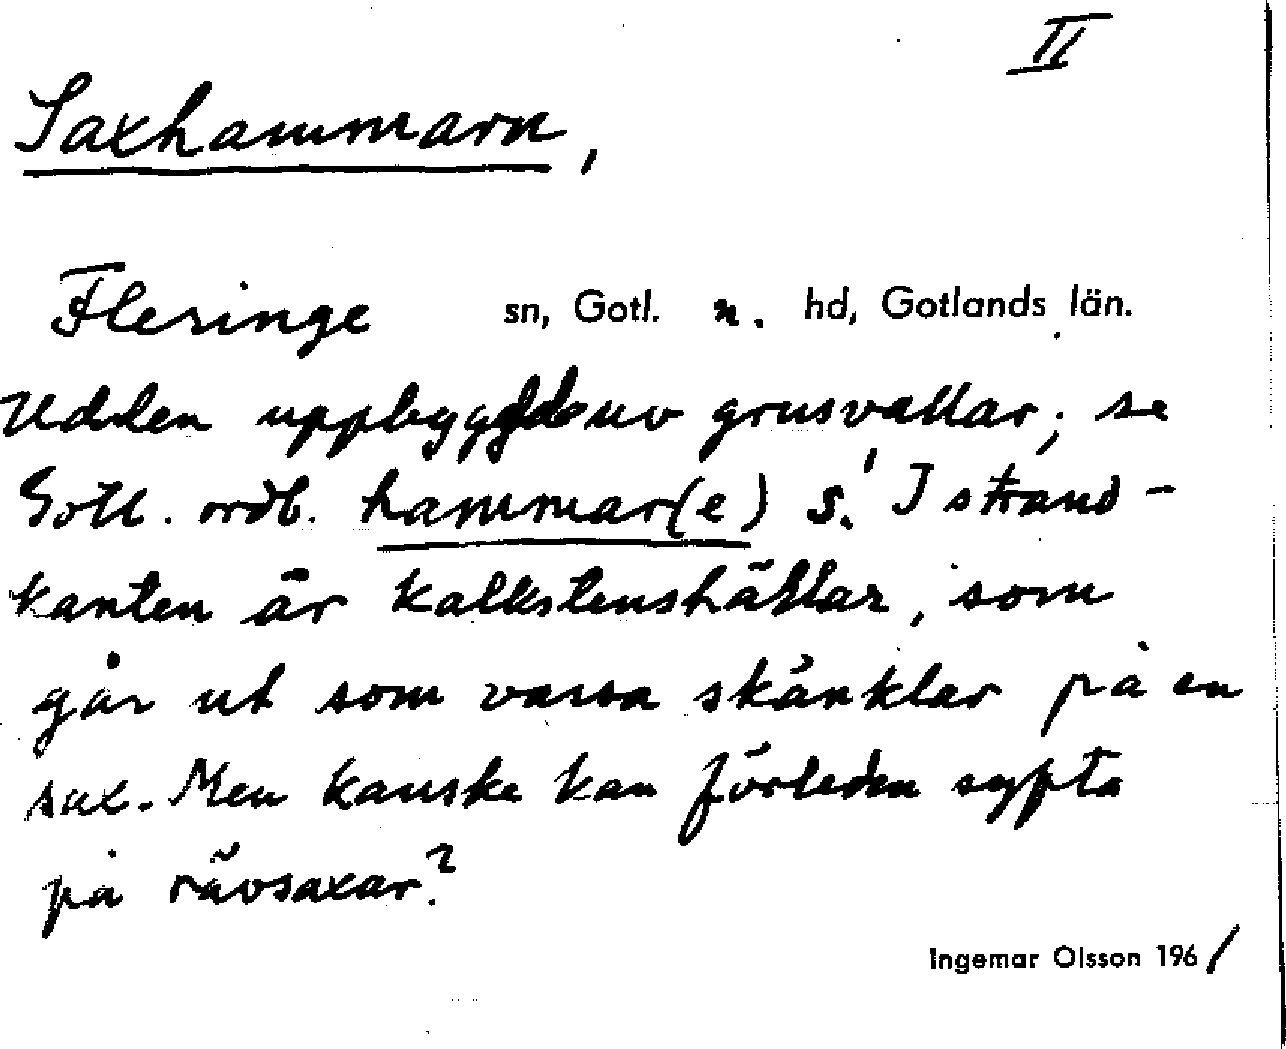 II
Saxhammarn,
Fleringe sn, Gotl. n. hd, Gotlands län.
Udden uppbyggd av grusvallar; se
Gotl. ordb. hammar(e) s.' I strand-
kanten är kalkstenshällar, som
går ut som vassa skänklar på en
sax. Men kanske kan förleden syfta
på rävsaxar?
Ingemar Olsson 1961